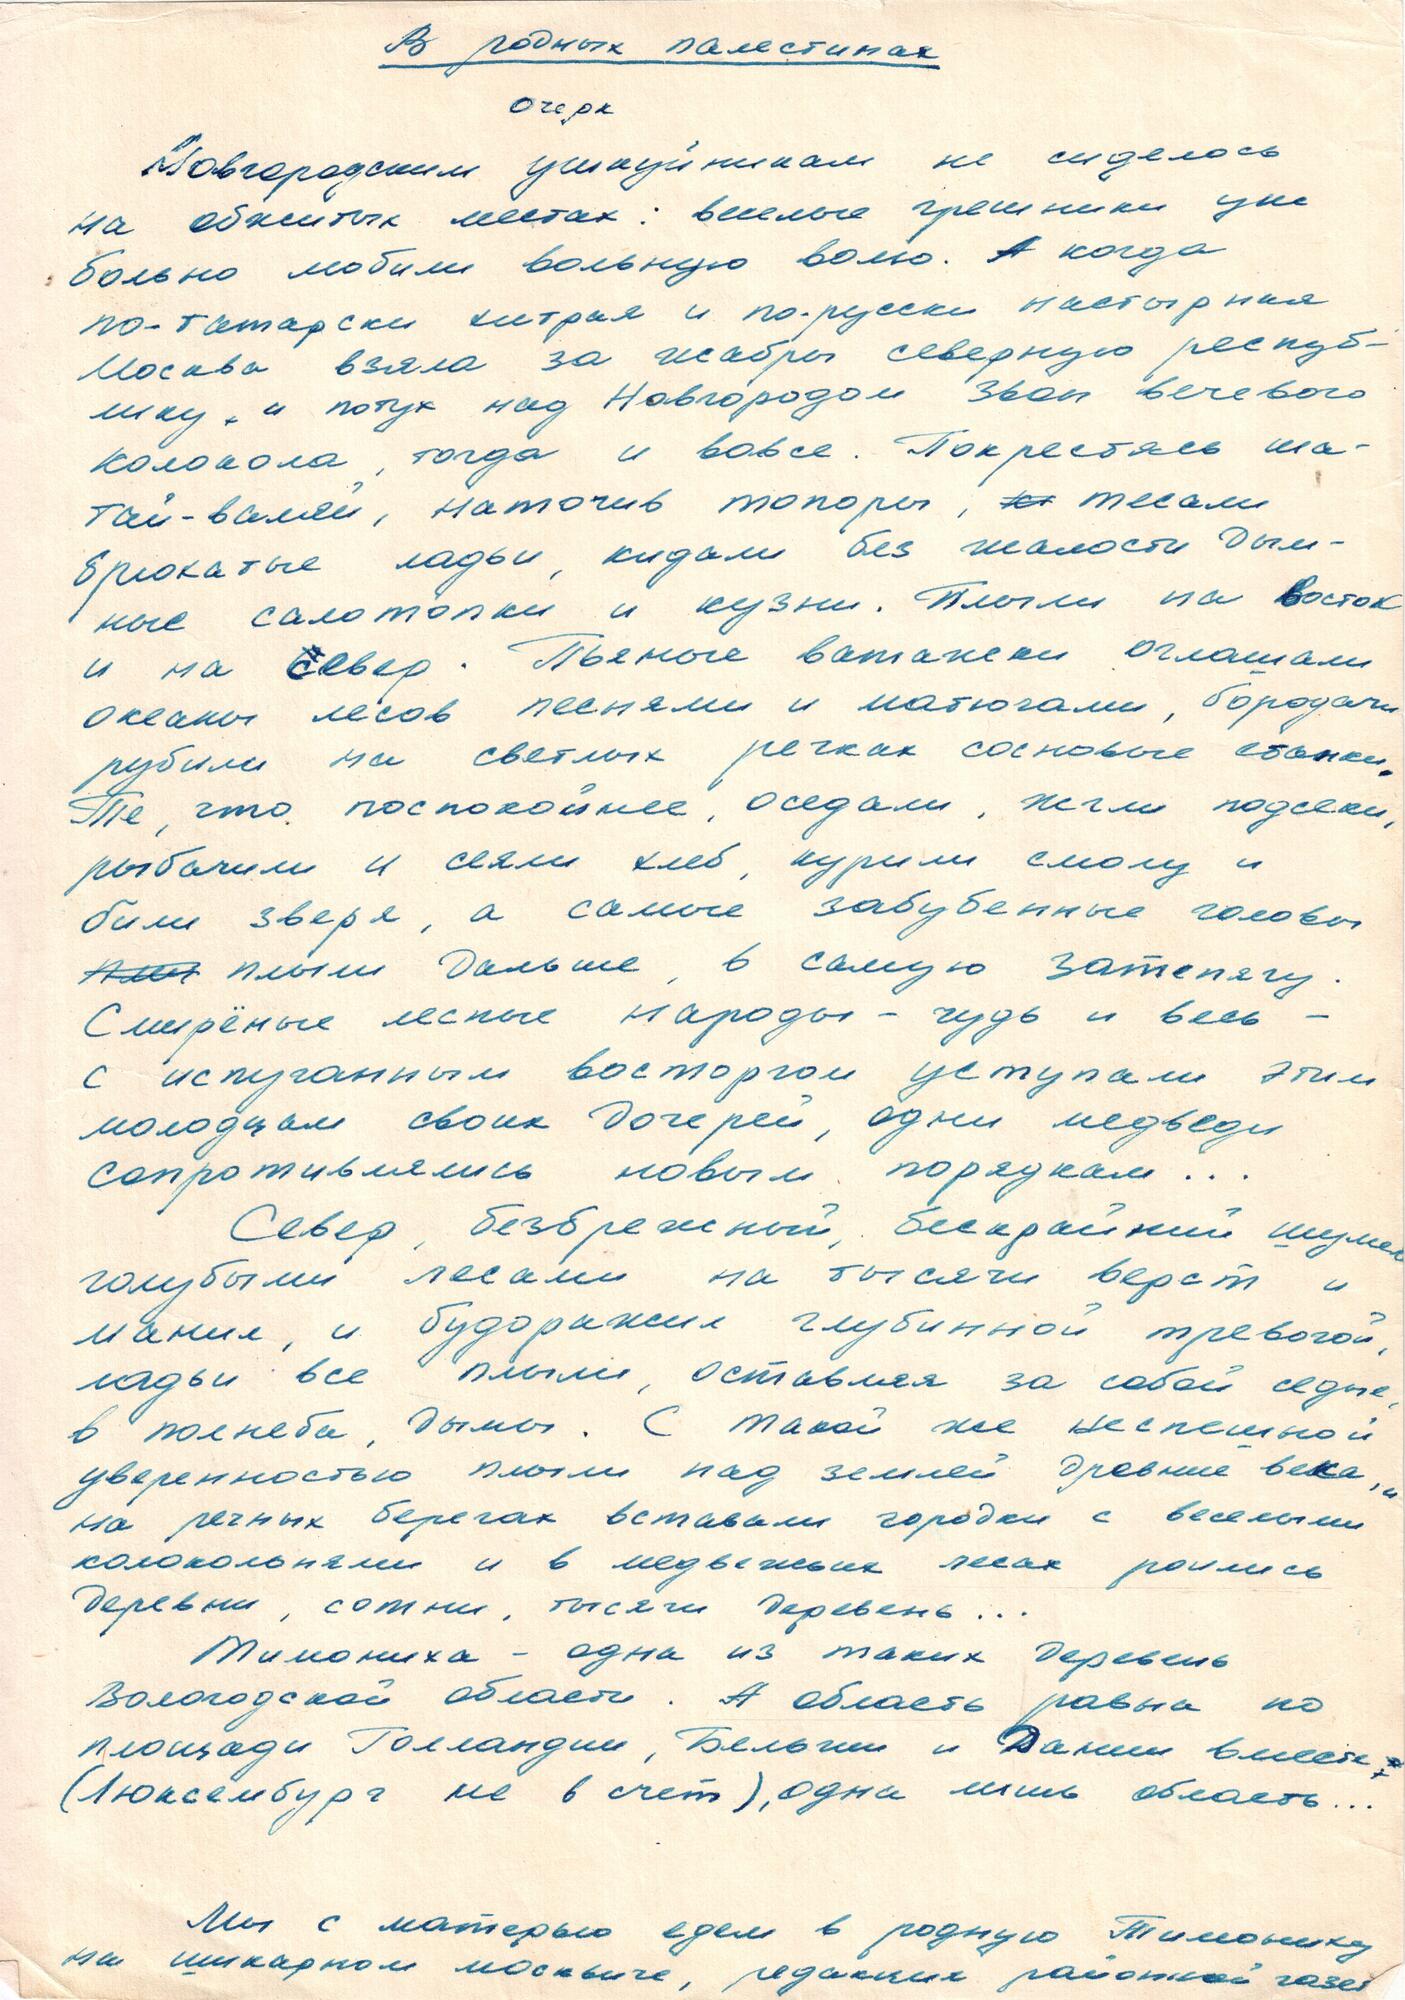 В родных палестинах
очерк
Новгородским ушкуйникам не сиделось
на обжитых местах: веселые грешники уж
больно любили вольную волю. А когда
по-татарски хитрая и по-русски настырная
Москва взяла за жабры северную респуб-
лику, и потух над Новгородом звон вечевого
колокола, тогда и вовсе. Покрестясь ша-
тай-валяй, наточив топоры, тесали
брюхатые ладьи, кидали без жалости дым-
ные салотопки и кузни. Плыли на Восток
и на север. Пьяные ватажки оглашали
океаны лесов песнями и матюгами, бородачи
рубили на светлых речках сосновые станки.
Те, что поспокойнее, оседали, жгли подсеки,
рыбачили и сеяли хлеб, курили смолу и
били зверя, а самые забубенные головы
плыли дальше, в самую затепягу.
Смирёные лесные народы – чудь и весь –
с испуганным восторгом уступали этим
молодцам своих дочерей, одни медведи
сопротивлялись новым порядкам...
Север, безбрежный, бескрайний шумел
голубыми лесами на тысячи верст и
манил, и будоражил глубинной тревогой,
ладьи все плыли, оставляя за собой седые,
в полнеба, дымы. С такой же неспешной
уверенностью плыли над землей древние века, и
на речных берегах вставали городки с веселыми
колокольнями и в медвежьих лесах роились
деревни, сотни, тысячи деревень...
Тимониха – одна из таких деревень
Вологодской области. А область равна по
площади Голландии, Бельгии и Дании вместе
(Люксембург не в счет), одна лишь область...
Мы с матерью едем в родную Тимониху
на шикарном москвиче, редакция районной газет